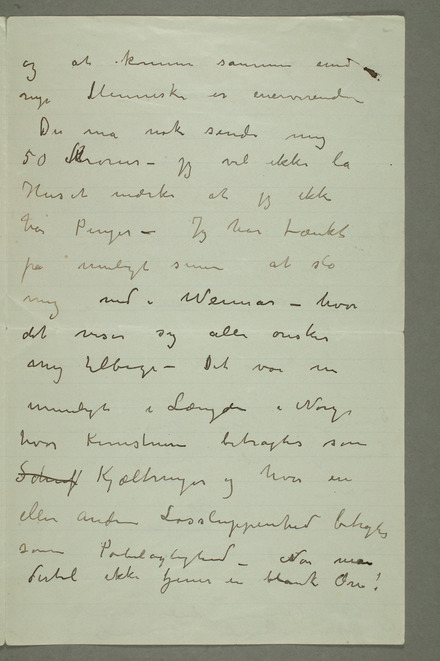 og at komme sammen med
nye Mennesker er enerverende
Du må nok sende mig
50 Kroner – jeg vil ikke la
Huset mærke at jeg ikk
har Penger – Jeg har tænkt
på muligt siden at slå
mig ned i Weimar – hvor
det viser sig alle ønsker
mig tilbage – Det var u
muligt i Længden i Norge
hvor Kunstneren betragtes som
Kjæltringer og hvor en
eller anden Lossluppenhed betragtes
som – Når man
dertil ikke tjener en blank Øre!